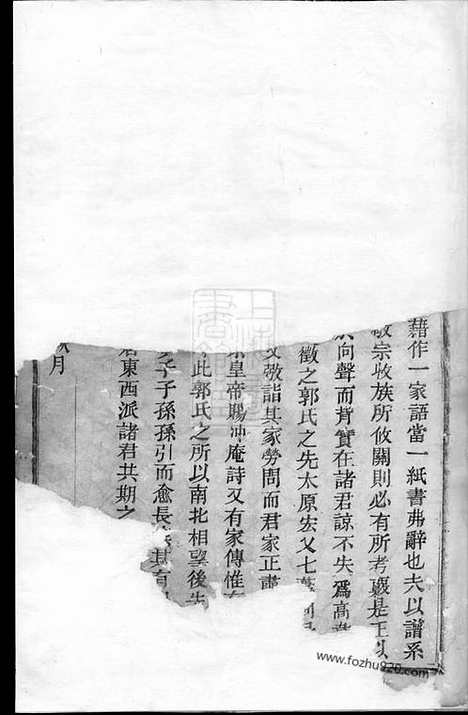 藉作一家語當一紙書弗辭也夫以譜系
敬宗收族所攸關則必有所考覈是正以
向聲而背實在諸君諒不失爲高
徵之郭氏之先太原宏又七
敬詣其家勞問而君家正肅
皇帝賜沖庵詩又有家傳惟
此郭氏之所以南北相望後先
子子孫孫引而愈長
東西派諸君共期之
月
www.fozhu920.com